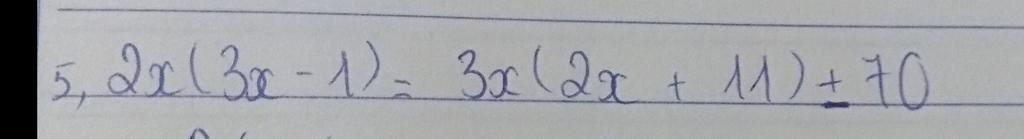 5, 2x(3x - 1) = 3x(2x + 11) ± 70